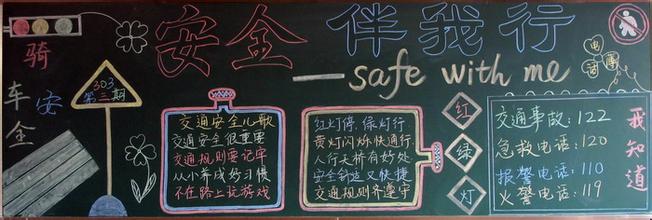 安全 伴我行
—safe with me
骑车安全
303
第三期
交通安全儿歌
交通安全很重要
交通规则要记牢
从小养成好习惯
不在路上玩游戏
红灯停,绿灯行
黄灯闪烁快通行
人行天桥有好处
安全舒适又快捷
交通规则齐遵守
红
绿
灯
电话
交通事故:122
急救电话:120
报警电话:110
火警电话:119
我知道